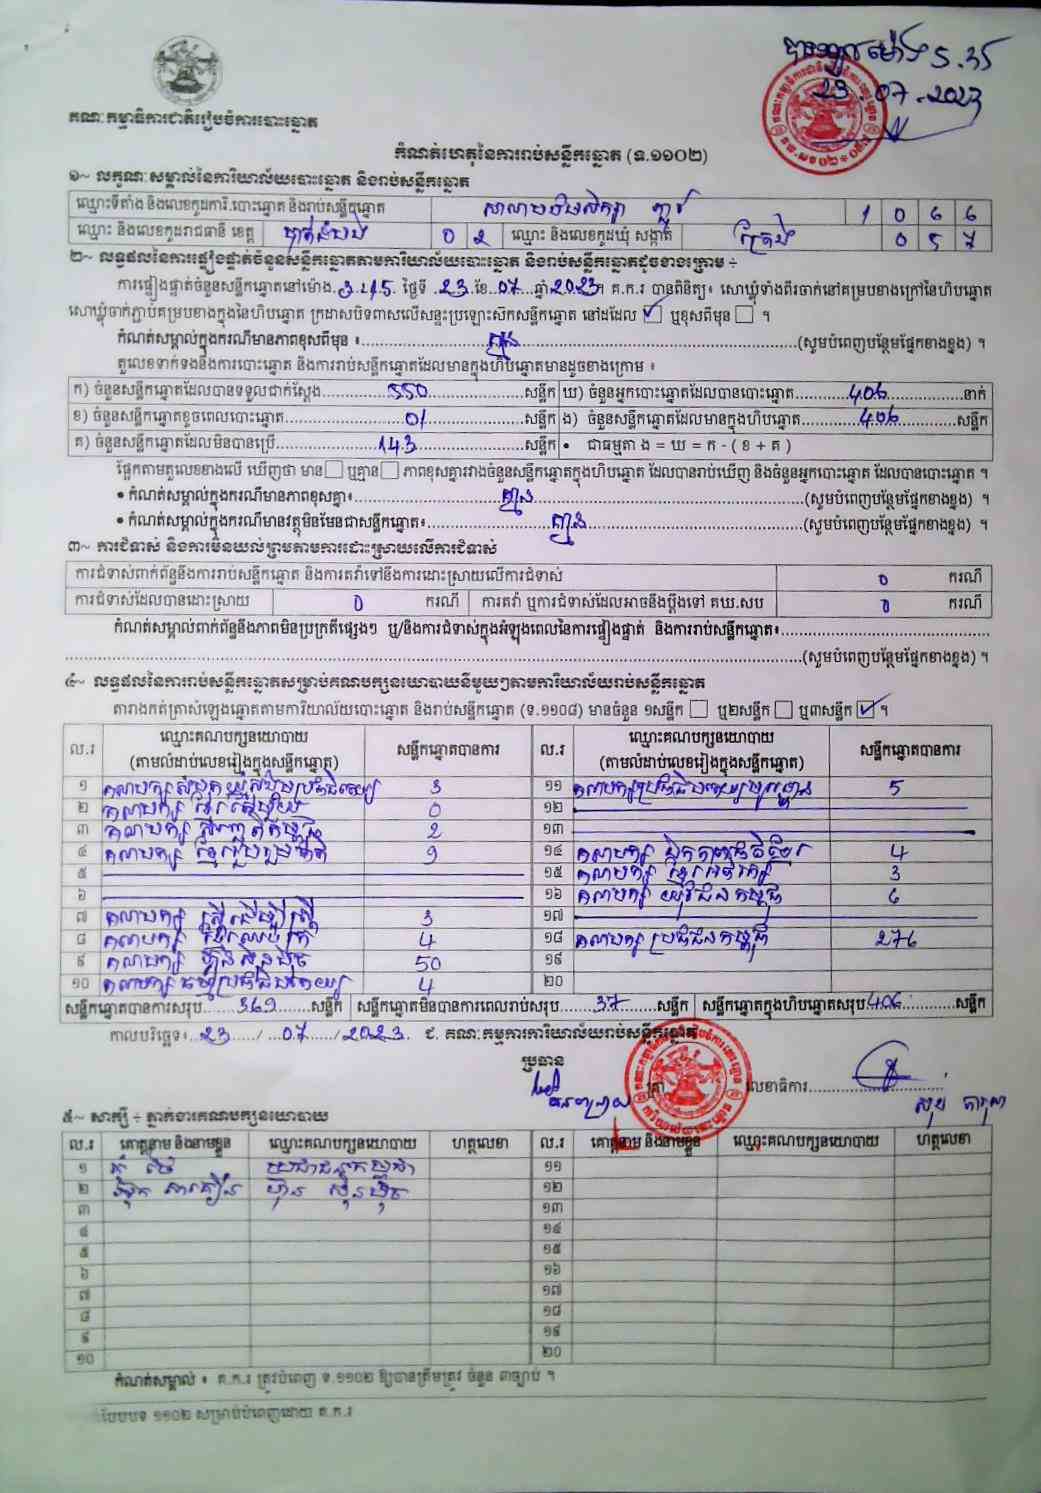 បានចូលម៉ោង 5.35
23.07.2023
គណៈកម្មាធិការជាតិរៀបចំការបោះឆ្នោត
កំណត់ហេតុនៃការរាប់សន្លឹកឆ្នោត (ទ.១១០២)
១~ លក្ខណៈសម្គាល់នៃការិយាល័យបោះឆ្នោត និងរាប់សន្លឹកឆ្នោត
ឈ្មោះទីតាំង និងលេខកូដការិ.បោះឆ្នោត និងរាប់សន្លឹកឆ្នោត សាលាបឋមសិក្សា 1 0 6 6
ឈ្មោះ និងលេខកូដរាជធានី ខេត្ត បាត់ដំបង 0 2 ឈ្មោះ និងលេខកូដឃុំ សង្កាត់ ត្រែង 0 5 7
២~ លទ្ធផលនៃការផ្ទៀងផ្ទាត់ចំនួនសន្លឹកឆ្នោតតាមការិយាល័យបោះឆ្នោត និងរាប់សន្លឹកឆ្នោតដូចខាងក្រោម ÷
ការផ្ទៀងផ្ទាត់ចំនួនសន្លឹកឆ្នោតនៅម៉ោង 3:15 ថ្ងៃទី 23 ខែ 07 ឆ្នាំ 2023 ។ គ.ក.រ បានពិនិត្យ៖ សោឃ្លុំទាំងពីរចាក់នៅគម្របខាងក្រៅនៃហិបឆ្នោត
សោឃ្លុំចាក់ភ្ជាប់គម្របខាងក្នុងនៃហិបឆ្នោត ក្រដាសបិទពាសលើសន្ទះប្រឡោះសឹកសន្លឹកឆ្នោត នៅដដែល ☑ ឬខុសពីមុន ☐ ។
កំណត់សម្គាល់ក្នុងករណីមានភាពខុសពីមុន ៖ គ្មាន (សូមបំពេញបន្ថែមផ្នែកខាងខ្នង) ។
តួលេខទាក់ទងនឹងការបោះឆ្នោត និងការរាប់សន្លឹកឆ្នោតដែលមានក្នុងហិបឆ្នោតមានដូចខាងក្រោម ៖
ក) ចំនួនសន្លឹកឆ្នោតដែលបានទទួលជាក់ស្តែង 550 សន្លឹក ឃ) ចំនួនអ្នកបោះឆ្នោតដែលបានបោះឆ្នោត 406 នាក់
ខ) ចំនួនសន្លឹកឆ្នោតខូចពេលបោះឆ្នោត 01 សន្លឹក ង) ចំនួនសន្លឹកឆ្នោតដែលមានក្នុងហិបឆ្នោត 406 សន្លឹក
គ) ចំនួនសន្លឹកឆ្នោតដែលមិនបានប្រើ 143 សន្លឹក • ជាធម្មតា ង = ឃ = ក - ( ខ + គ )
ផ្អែកតាមតួលេខខាងលើ ឃើញថា មាន ☐ ឬគ្មាន ☐ ភាពខុសគ្នារវាងចំនួនសន្លឹកឆ្នោតក្នុងហិបឆ្នោត ដែលបានរាប់ឃើញ និងចំនួនអ្នកបោះឆ្នោត ដែលបានបោះឆ្នោត ។
• កំណត់សម្គាល់ក្នុងករណីមានភាពខុសគ្នា៖ គ្មាន (សូមបំពេញបន្ថែមផ្នែកខាងខ្នង) ។
• កំណត់សម្គាល់ក្នុងករណីមានវត្ថុមិនមែនជាសន្លឹកឆ្នោត៖ គ្មាន (សូមបំពេញបន្ថែមផ្នែកខាងខ្នង) ។
៣~ ការជំទាស់ និងការមិនយល់ព្រមតាមការដោះស្រាយលើការជំទាស់
ការជំទាស់ពាក់ព័ន្ធនឹងការរាប់សន្លឹកឆ្នោត និងការតវ៉ាទៅនឹងការដោះស្រាយលើការជំទាស់ 0 ករណី
ការជំទាស់ដែលបានដោះស្រាយ 0 ករណី ការតវ៉ា ឬការជំទាស់ដែលអាចនឹងប្តឹងទៅ គឃ.សប 0 ករណី
កំណត់សម្គាល់ពាក់ព័ន្ធនឹងភាពមិនប្រក្រតីផ្សេងៗ ឬ/និងការជំទាស់ក្នុងអំឡុងពេលនៃការផ្ទៀងផ្ទាត់ និងការរាប់សន្លឹកឆ្នោត៖
(សូមបំពេញបន្ថែមផ្នែកខាងខ្នង) ។
៤~ លទ្ធផលនៃការរាប់សន្លឹកឆ្នោតសម្រាប់គណបក្សនយោបាយនីមួយៗតាមការិយាល័យរាប់សន្លឹកឆ្នោត
តារាងកត់ត្រាសំឡេងឆ្នោតតាមការិយាល័យបោះឆ្នោត និងរាប់សន្លឹកឆ្នោត (ទ.១១០៨) មានចំនួន ១សន្លឹក ☐ ឬ២សន្លឹក ☐ ឬ៣សន្លឹក ☑ ។
ល.រ ឈ្មោះគណបក្សនយោបាយ (តាមលំដាប់លេខរៀងក្នុងសន្លឹកឆ្នោត) សន្លឹកឆ្នោតបានការ ល.រ ឈ្មោះគណបក្សនយោបាយ (តាមលំដាប់លេខរៀងក្នុងសន្លឹកឆ្នោត) សន្លឹកឆ្នោតបានការ
១ គណបក្ស សំបុកឃ្មុំសង្គមប្រជាធិបតេយ្យ 3 ១១ គណបក្សប្រជាធិបតេយ្យមូលដ្ឋាន 5
២ គណបក្ស ខ្មែរ 0 ១២
៣ គណបក្ស កម្ពុជា 2 ១៣
៤ គណបក្ស ខ្មែររួបរួមជាតិ 9 ១៤ គណបក្ស 4
៥ ១៥ គណបក្ស ខ្មែរអភិរក្ស 3
៦ ១៦ គណបក្ស យុវជនកម្ពុជា 6
៧ គណបក្ស ស្ត្រីដើម្បីស្ត្រី 3 ១៧
៨ គណបក្ស 4 ១៨ គណបក្ស ប្រជាជនកម្ពុជា 276
៩ គណបក្ស ហ្វ៊ុនស៊ិនប៉ិច 50 ១៩
១០ គណបក្សធម្មាធិបតេយ្យ 4 ២០
សន្លឹកឆ្នោតបានការសរុប 369 សន្លឹក សន្លឹកឆ្នោតមិនបានការពេលរាប់សរុប 37 សន្លឹក សន្លឹកឆ្នោតក្នុងហិបឆ្នោតសរុប 406 សន្លឹក
កាលបរិច្ឆេទ៖ 23 / 07 / 2023. ជ. គណៈកម្មការការិយាល័យរាប់សន្លឹកឆ្នោត
ប្រធាន
ត្រា លេខាធិការ
៥~ សាក្សី ÷ ភ្នាក់ងារគណបក្សនយោបាយ
ល.រ គោត្តនាម និងនាមខ្លួន ឈ្មោះគណបក្សនយោបាយ ហត្ថលេខា ល.រ គោត្តនាម និងនាមខ្លួន ឈ្មោះគណបក្សនយោបាយ ហត្ថលេខា
១ ប្រជាជនកម្ពុជា ១១
២ ហ្វ៊ុន ស៊ិនប៉ិច ១២
៣ ១៣
៤ ១៤
៥ ១៥
៦ ១៦
៧ ១៧
៨ ១៨
៩ ១៩
១០ ២០
កំណត់សម្គាល់ ៖ គ.ក.រ ត្រូវបំពេញ ទ.១១០២ ឱ្យបានត្រឹមត្រូវ ចំនួន ៣ច្បាប់ ។
បែបបទ ១១០២ សម្រាប់បំពេញដោយ គ.ក.រ